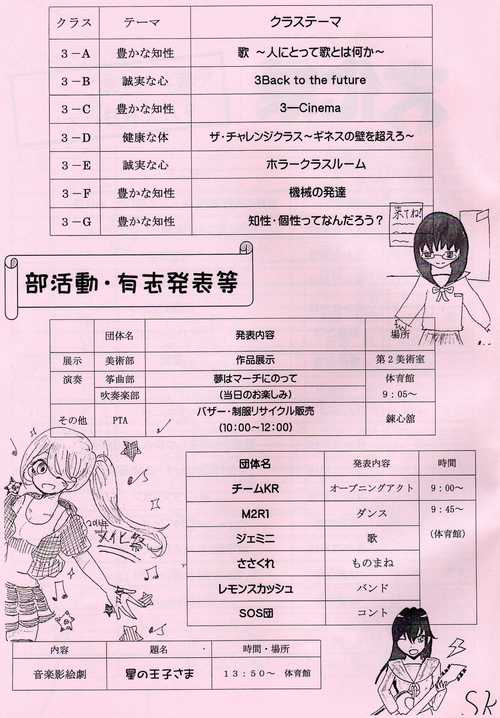 クラス テーマ クラステーマ
3-A 豊かな知性 歌 ～人にとって歌とは何か～
3-B 誠実な心 3Back to the future
3-C 豊かな知性 3―Cinema
3-D 健康な体 ザ・チャレンジクラス～ギネスの壁を超えろ～
3-E 誠実な心 ホラークラスルーム
3-F 豊かな知性 機械の発達
3-G 豊かな知性 知性・個性ってなんだろう?
来てね!
部活動・有志発表等
団体名 発表内容 場所
展示 美術部 作品展示 第2美術室
演奏 筝曲部 夢はマーチにのって 体育館
吹奏楽部 (当日のお楽しみ) 9:05～
その他 PTA バザー・制服リサイクル販売 錬心舘
(10:00～12:00)
団体名 発表内容 時間
チームKR オープニングアクト 9:00～
M2R1 ダンス 9:45～
ジェミニ 歌 (体育館)
ささくれ ものまね
レモンスカッシュ バンド
SOS団 コント
内容 題名 時間・場所
音楽影絵劇 星の王子さま 13:50～ 体育館
SK